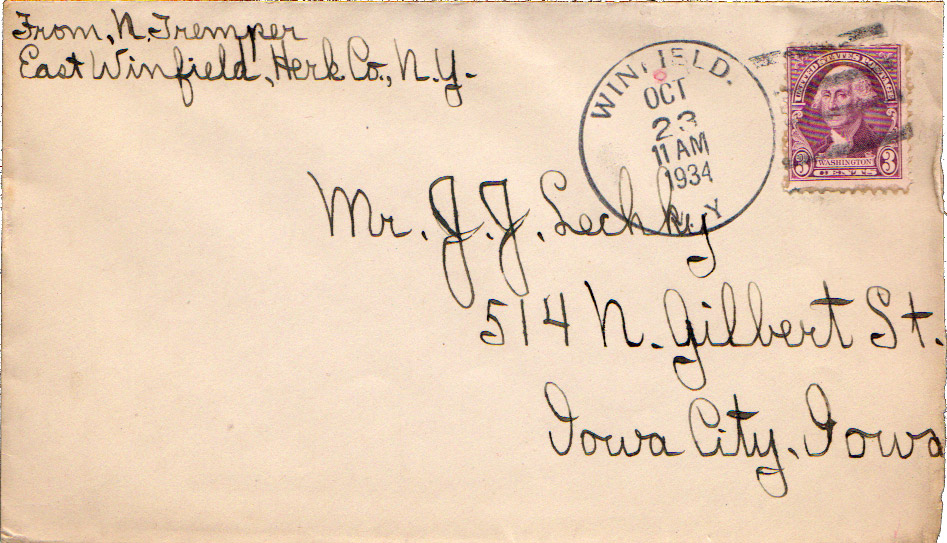 From, N. Tremper
East Winfield, Herk Co., N.Y.
WINFIELD.
OCT
23
11 AM
1934
N.Y
UNITED STATES POSTAGE
3 WASHINGTON 3
CENTS
Mr. J. J. Lechky
514 N. Gilbert St.
Iowa City, Iowa